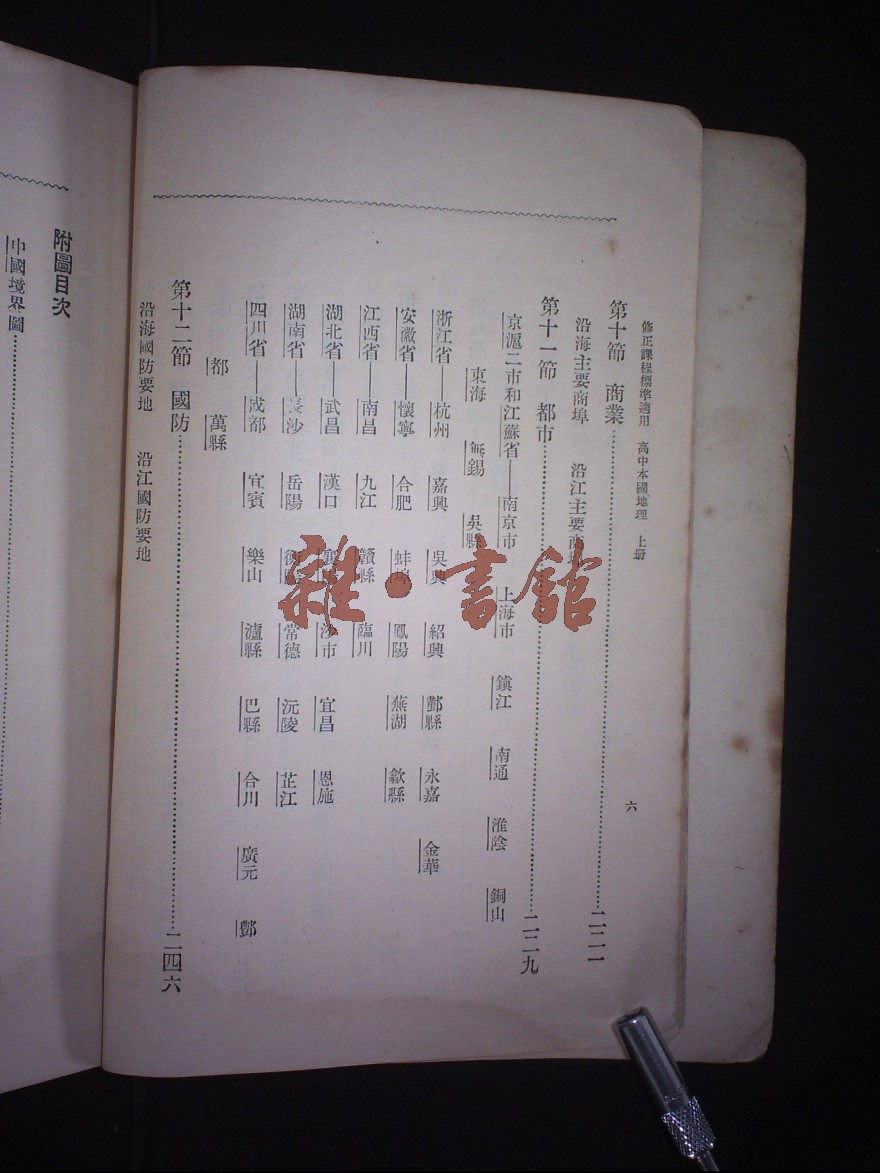 修正課程標準適用 高中本國地理 上册
六
第十節 商業……二二一
沿海主要商埠 沿江主要商埠
第十一節 都市……二二九
京滬二市和江蘇省——南京市 上海市 鎮江 南通 淮陰 銅山
東海 無錫 吳縣
浙江省——杭州 嘉興 吳興 紹興 鄞縣 永嘉 金華
安徽省——懷寧 合肥 蚌埠 鳳陽 蕪湖 歙縣
江西省——南昌 九江 贛縣 臨川
湖北省——武昌 漢口 襄陽 沙市 宜昌 恩施
湖南省——長沙 岳陽 衡陽 常德 沅陵 芷江
四川省——成都 宜賓 樂山 瀘縣 巴縣 合川 廣元 酆
都 萬縣
第十二節 國防……二四六
沿海國防要地 沿江國防要地
附圖目次
中國境界圖……
雜·書館